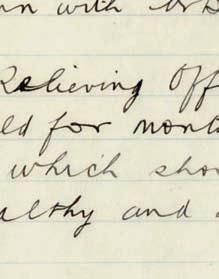 with
Relieving Off
ld for mont
which sho
althy and